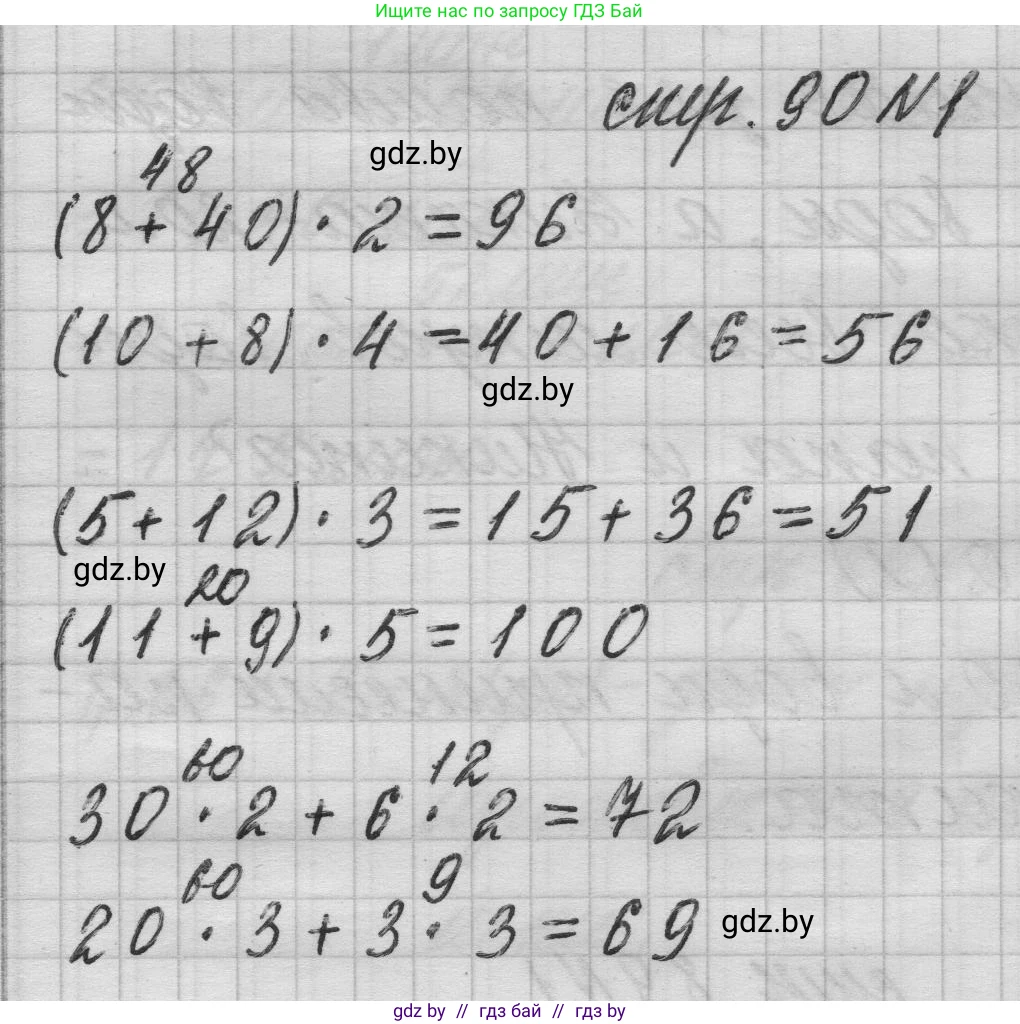 Ищите нас по запросу ГДЗ Бай
стр. 90 №1
gdz.by
48
(8 + 40) · 2 = 96
(10 + 8) · 4 = 40 + 16 = 56
gdz.by
(5 + 12) · 3 = 15 + 36 = 51
gdz.by
20
(11 + 9) · 5 = 100
60 12
30 · 2 + 6 · 2 = 72
60 9
20 · 3 + 3 · 3 = 69
gdz.by
gdz.by // гдз бай // гдз by